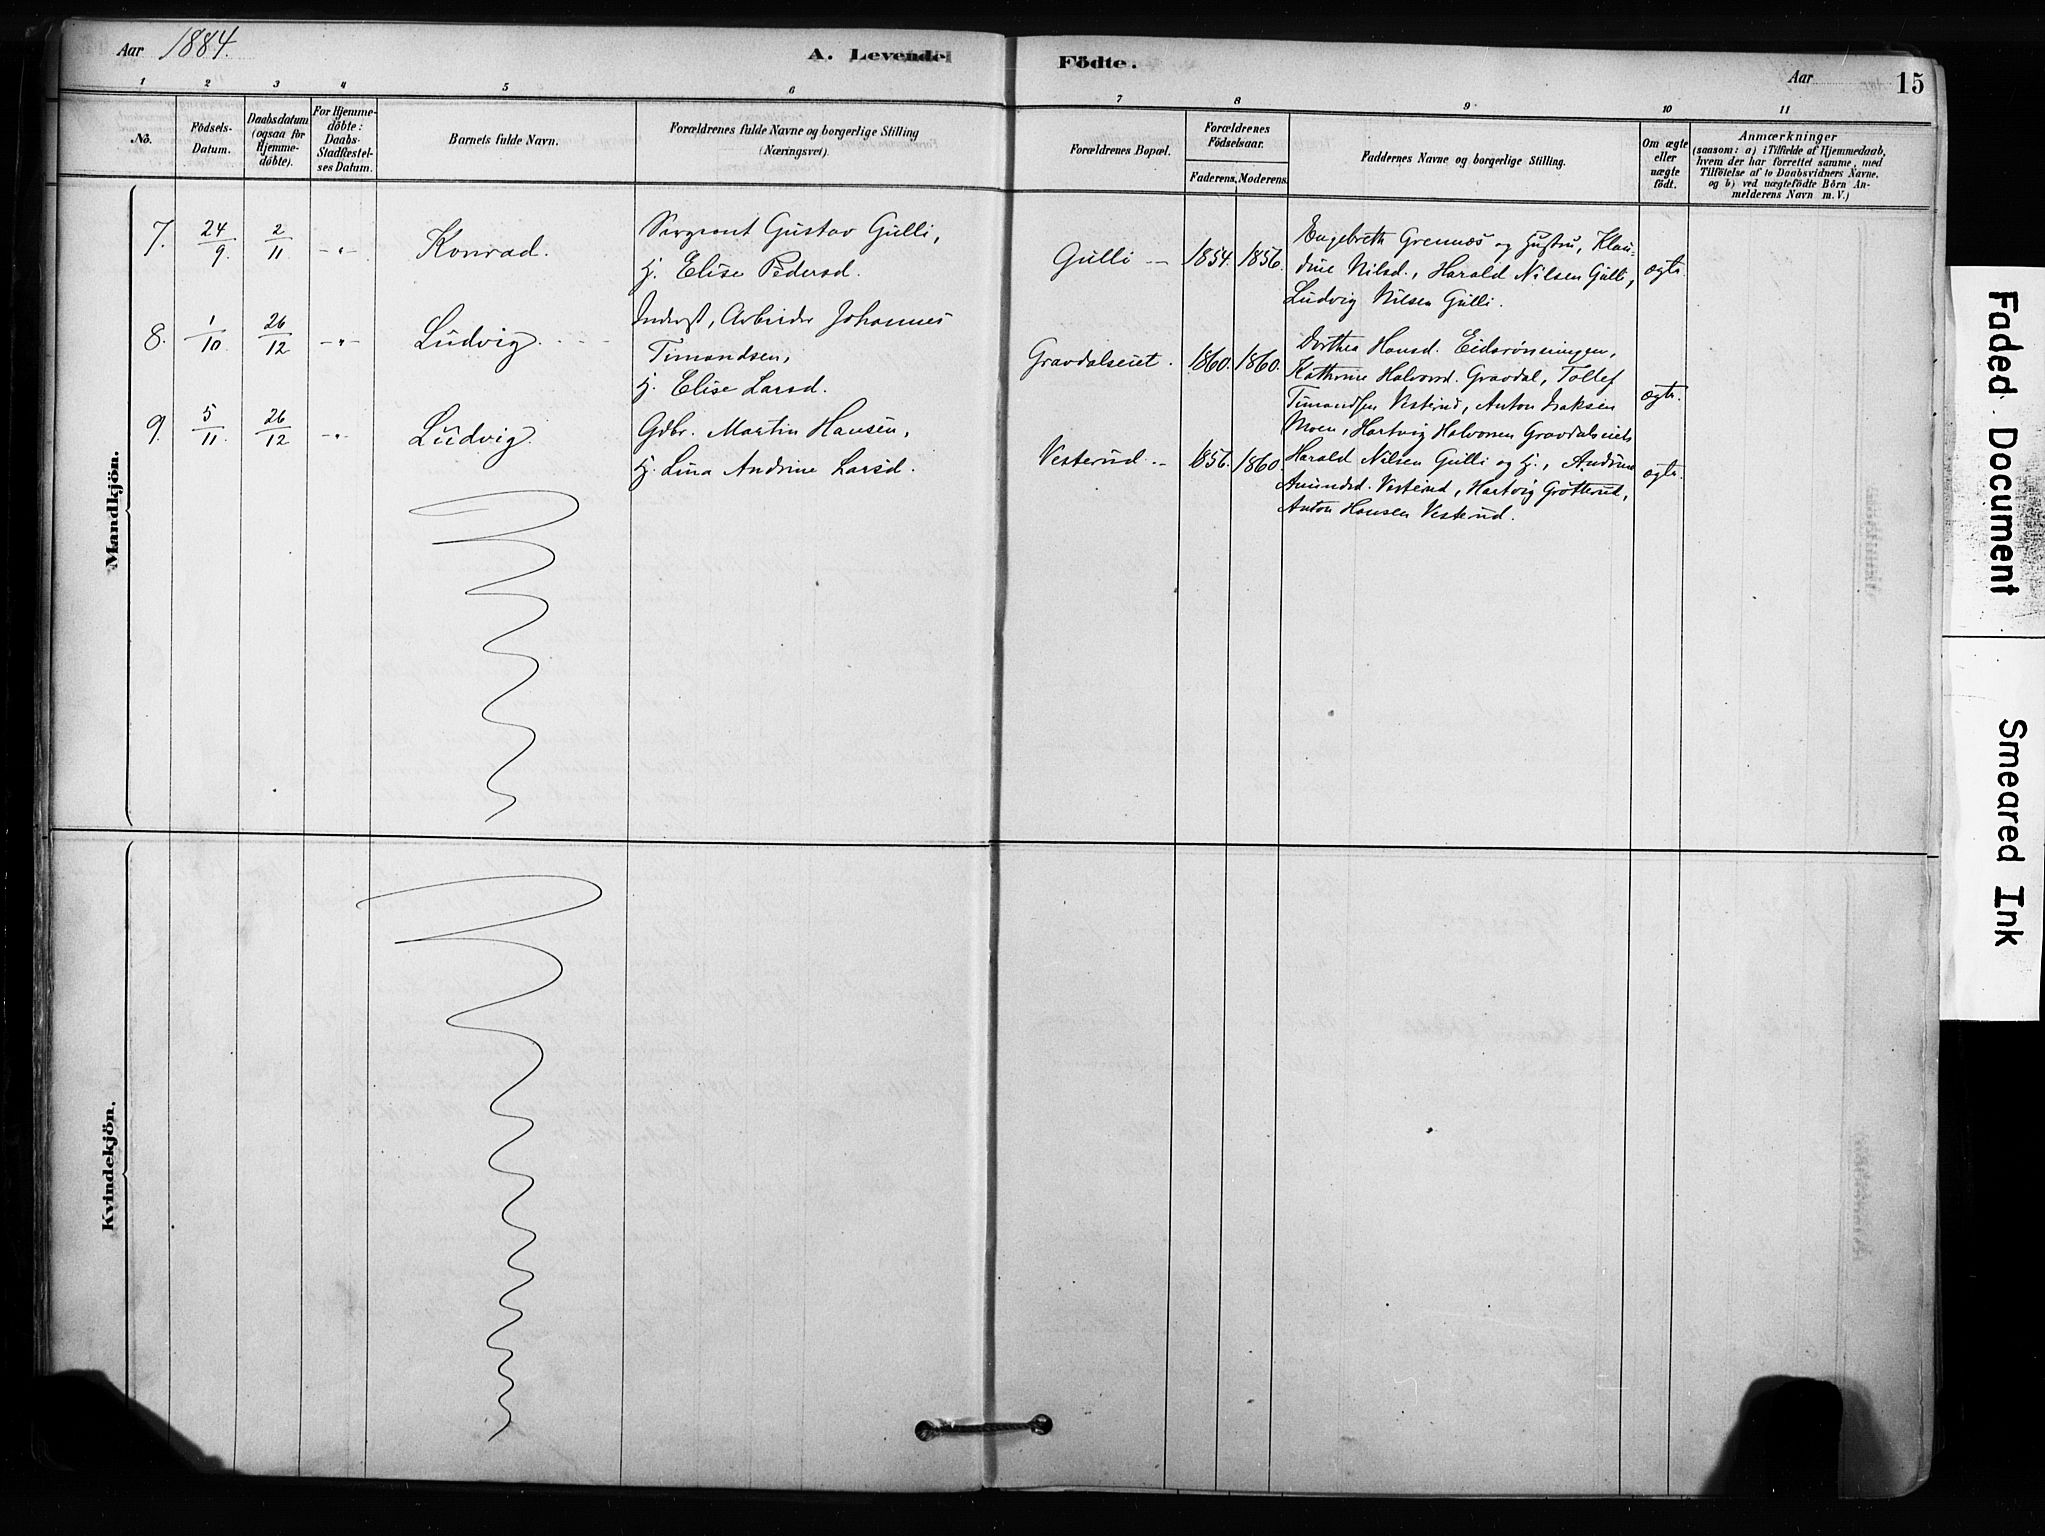 Aar 1884.
A. Levende Födte.
Aar
15
1 2 3 4 5 6 7 8 9 10 11
No.
Födsels-
Datum.
Daabsdatum
(ogsaa for
Hjemme-
döbte).
For Hjemme-
döbte:
Daabs-
Stadfæstel-
ses Datum.
Barnets fulde Navn.
Forældrenes fulde Navne og borgerlige Stilling
(Næringsvei).
Forældrenes Bopæl.
Forældrenes
Födselsaar.
Faderens. Moderens.
Faddernes Navne og borgerlige Stilling.
Om ægte
eller
uægte
födt.
Anmærkninger
(saasom: a) i Tilfælde af Hjemmedaab,
hvem der har forrettet samme, med
Tilföielse af to Daabsvidners Navne.
og b) ved uægtefödte Börn An-
melderens Navn m. V.)
Mandkjön.
7. 24/9. 2/11 -"- Konrad.
Sergeant Gustav Gulli,
Hj. Elise Pedersd.
Gulli - 1854. 1856.
Engebreth Grennes og Hustru, Klau-
dine Nilsd., Harald Nilsen Gulli,
Ludvig Nilsen Gulli.
ægte.
8. 1/10. 26/12 -"- Ludvig.
Inderst, Arbeider Johannes
Timandsen,
Hj. Elise Larsd.
Gravdalseiet. 1860. 1860.
Dorthea Hansd. Eidsrönningen,
Kathrine Halvorsd. Gravdal, Tollef
Timandsen Vesterud, Anton Isaksen
Moen, Hartvig Halvorsen Gravdalseiet
ægte.
9. 5/11. 26/12 -"- Ludvig.
Gdbr. Martin Hansen,
Hj. Lina Andrine Larsd.
Vesterud - 1856. 1860.
Harald Nilsen Gulli og Hj., Andrine
Amundsd. Vesterud, Hartvig Grötterud,
Anton Hansen Vesterud.
ægte.
Kvindekjön.
Faded Document
Smeared Ink